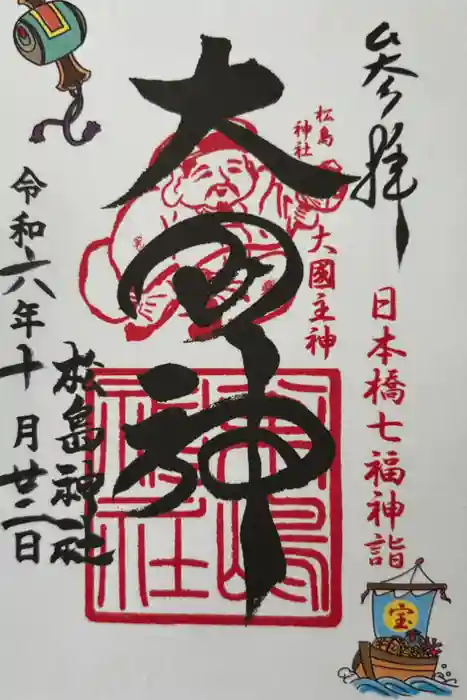 参拝
日本橋七福神詣
松島
神社
大國主神
大国神
松嶋
神社
松島神社
令和六年十月廿二日
宝